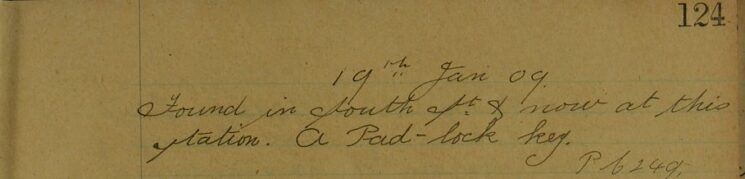 124
19th Jan 09
Found in South St. & now at this
station. A Pad-lock key.
P.C 249.